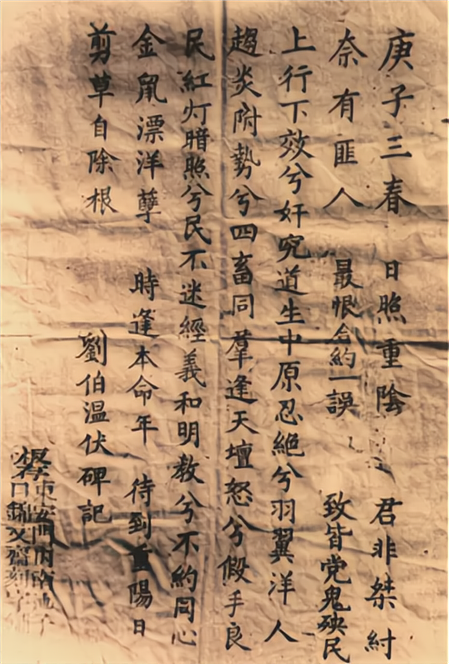 庚子三春 日照重陰 君非桀紂
奈有匪人 最恨合約一誤 致皆党鬼殃民
上行下效兮奸宄道生中原忍絶兮羽翼洋人
趨炎附勢兮四畜同羣逢天壇怒兮假手良
民紅灯暗照兮民不迷經義和明教兮不約同心
金鼠漂洋孽 時逢本命年 待到重陽日
剪草自除根 劉伯温伏碑記